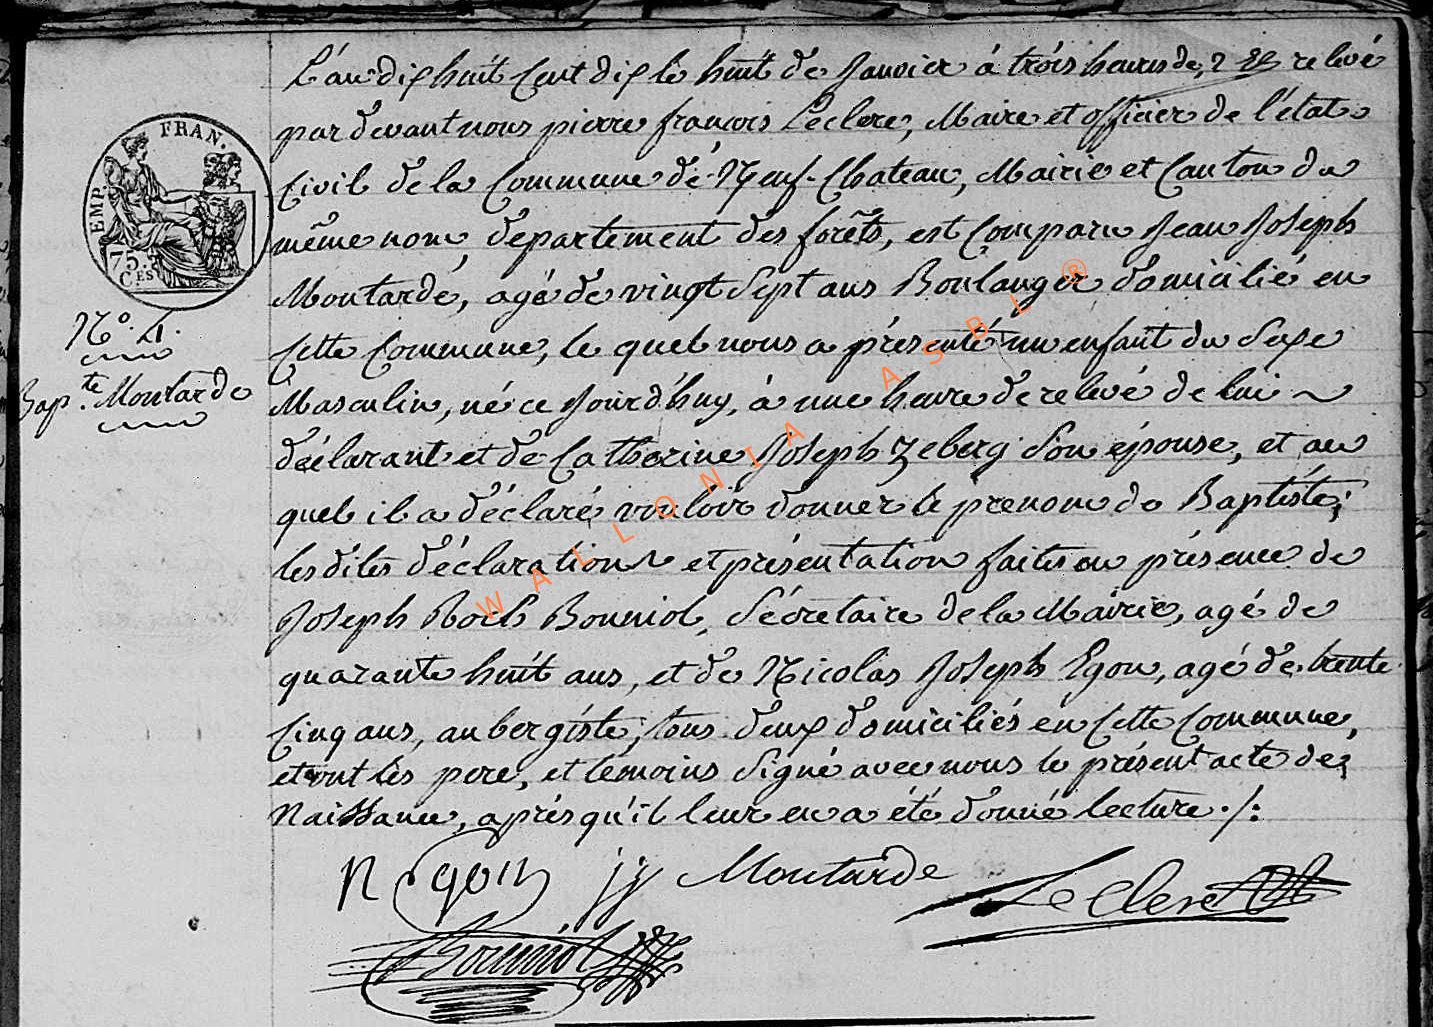 FRAN.
EMP.
75.
C.ES
N.° 4.
Bap.te Moutarde
L'an dix huit cent dix le huit de Janvier à trois heures de relevé
par devant nous pierre françois Leclerc, Maire et officier de l'état
Civil de la Commune dé Neuf-Chateau, Mairie et Canton du
même nom, département des forêts, est Comparu Jean Joseph
Moutarde, agé de vingt Sept ans Boulanger domicilié en
Cette Commune, le quel nous a présenté un enfant du Sexe
Masculin, né ce Jourd'huy, à une heure de relevé de lui
déclarant et de Catherine Joseph Zeberg Son épouse, et au
quel il a déclaré vouloir donner le prenom de Baptiste;
les dites déclaration et présentation faites en présence de
Joseph Roch Bouniol, Sécretaire de la Mairie, agé de
quarante huit ans, et de Nicolas Joseph Egon, agé de trente
Cinq ans, aubergiste; tous deux domiciliés en Cette Commune,
et ont les pere, et temoins Signé avec nous le présent acte de
Naissance, après qu'il leur en a été donné lecture ./:
N Egon jj Moutarde LeClerc
Bouniol
WALLONIA ASBL ®